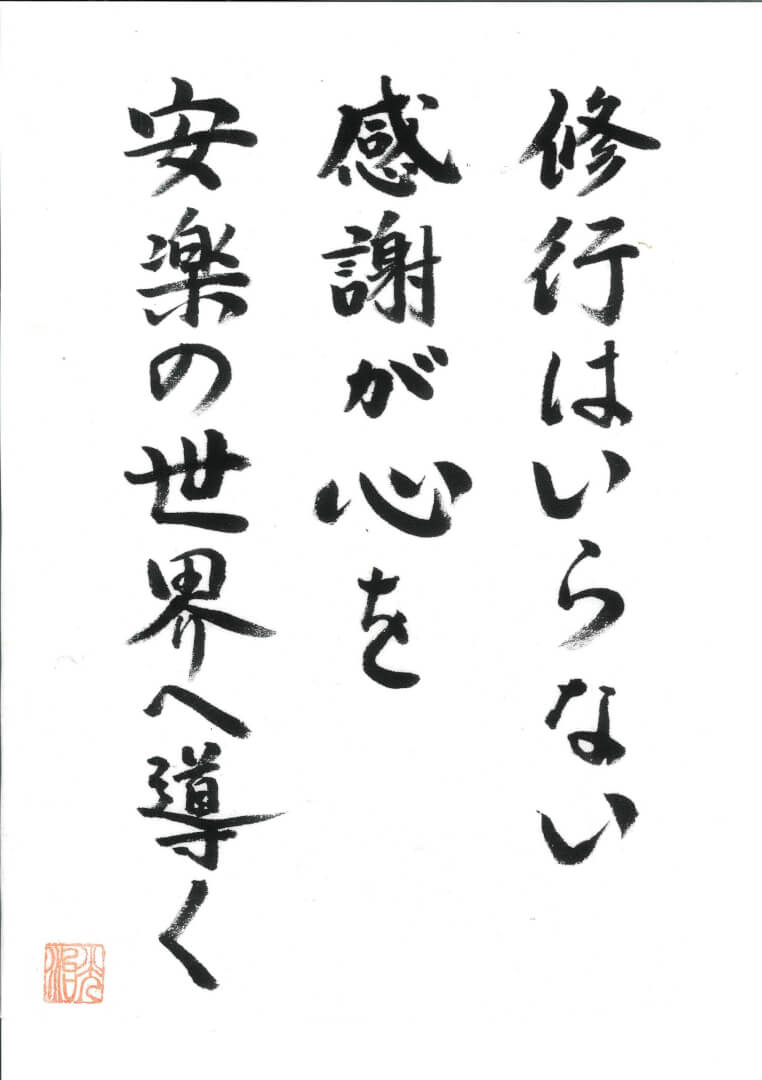 修行はいらない
感謝が心を
安楽の世界へ導く